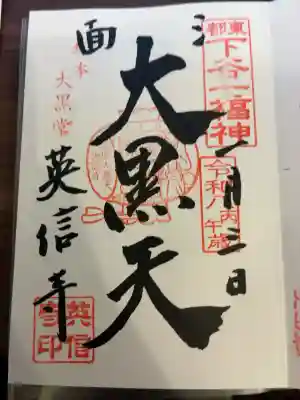 東都
下谷七福神
令和八丙午歳
一月三日
三面
大黒天
大黒堂
英信寺
英信寺印